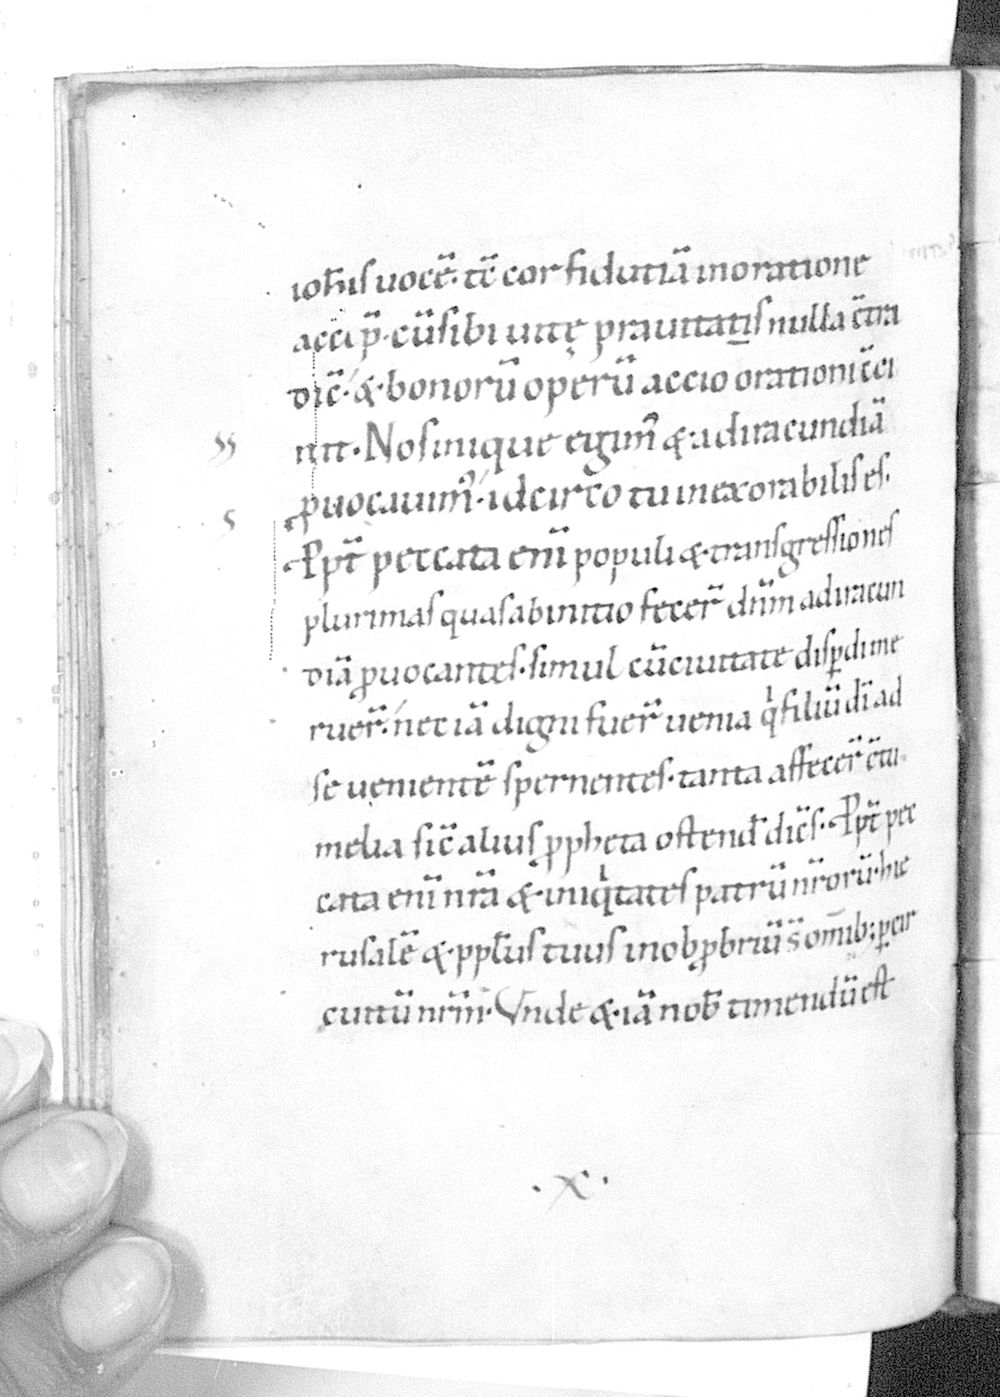 ioh̅is uocē. tc̅ cor fidutiā in oratione
acci p̄. cū sibi uitę prauitatis nulla c̅tra
dic̅. & bonorū operū accio orationi c̅ci
nit. Nos inique egim̅ & ad iracundiā
ꝓuocauim̅. idcirco tu inexorabilis es.
Ppt̅ peccata eni̅ populi & transgressiones
plurimas quas ab initio fecer̅ dn̅m ad iracun
diā ꝓuocantes. simul cū ciuitate disꝑdi me
ruer̅. nec iā digni fuer̅ uenia q̇ filiū di̅ ad
se uenientē spernentes. tanta affecer̅ c̅tu
melia sic̅ alius ꝓpheta ostend̅ dic̅s. Ppt̅ pec
cata eni̅ nr̅a & iniq̇tates patrū nr̅orū. hie
rusalē & ppl̅us tuus in obꝓbriū s̅ om̅ib; ꝑ cir
cuitū nr̅m. Vnde & iā nob̅ timendū est
.x.